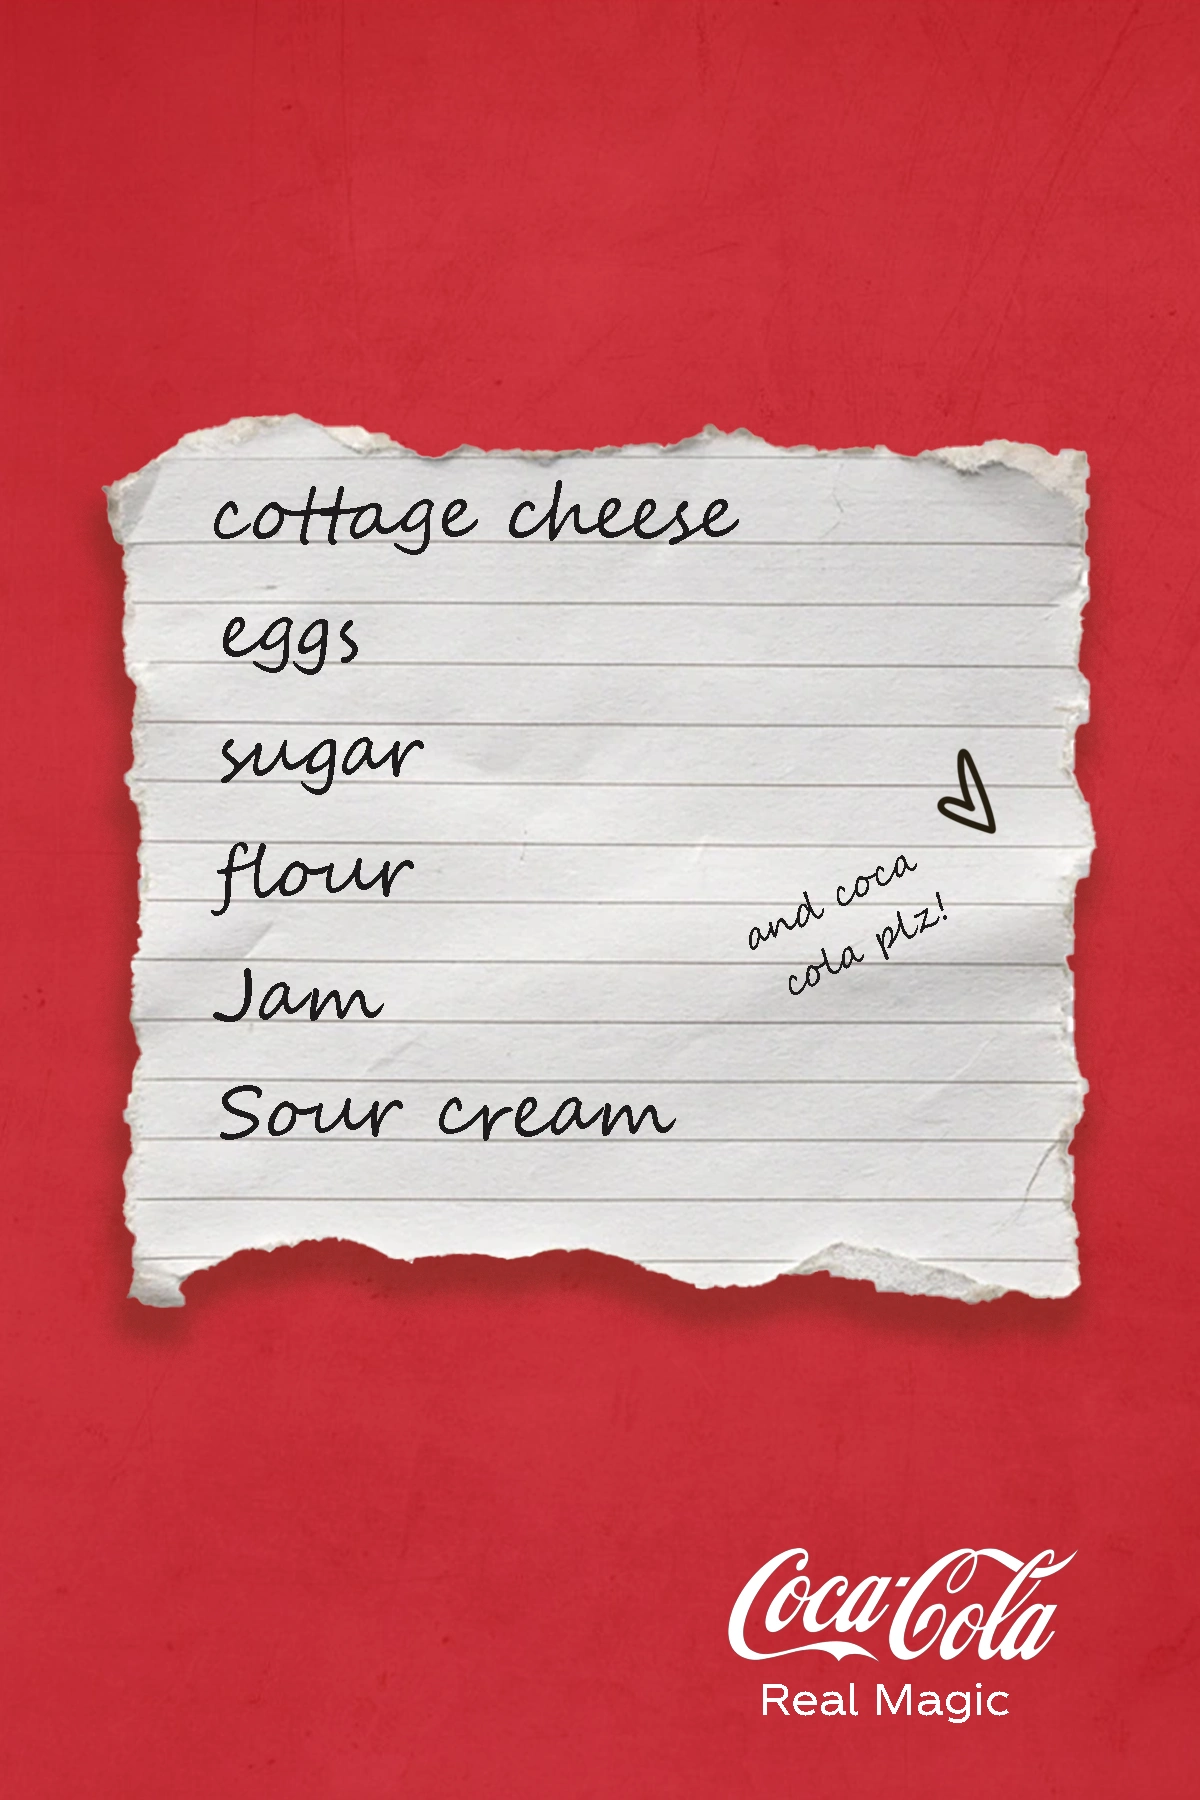 cottage cheese
eggs
sugar
flour
and coca
cola plz!
Jam
Sour cream
Coca-Cola
Real Magic